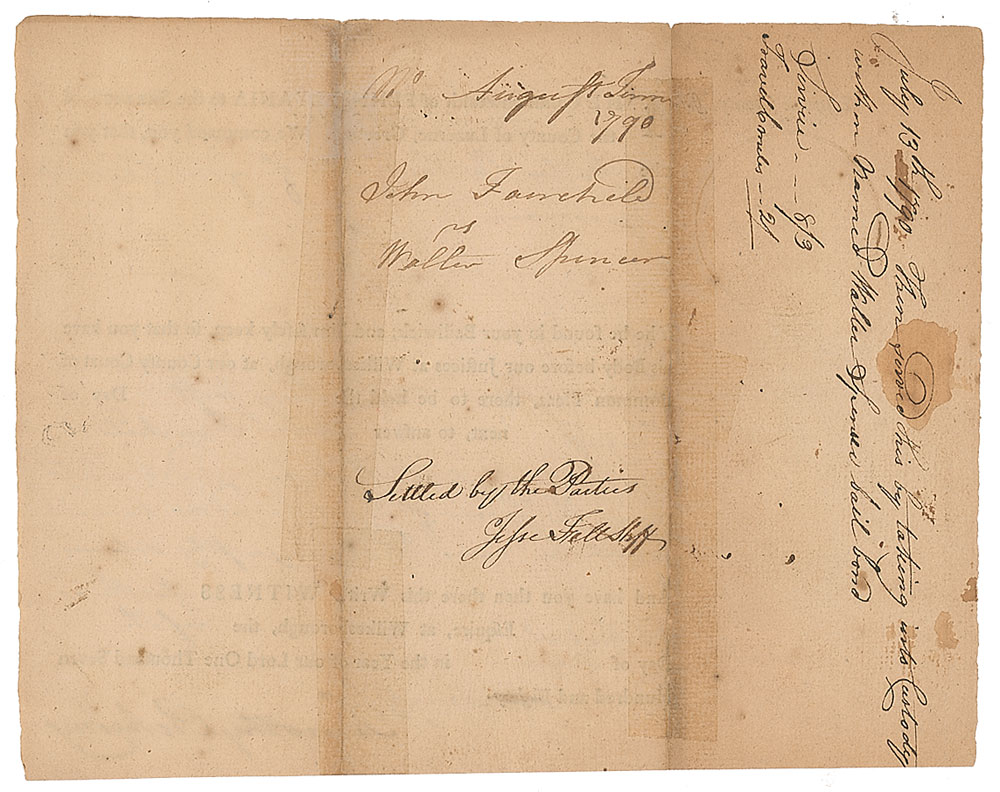 Nº August Term
1790
John Fairchild
vs
Waller Spencer
Settled by the Parties
Jesse Fell Shff
July 13th 1790 Then served this by taking into Custody
within Named Waller Spenser bail bond
Service -- 8/3
Travell miles -- 21
COUNTY of Luzerne
he be found in your Bailiwick, and him safely keep, so that you have
his Body before our Justices at Wilkesborough, at our County Court of
Common Pleas, there to be held the Day of
next, to answer
And have you then there this WRIT. WITNESS
Esquire, at Wilkesborough, the
Day of in the Year of our Lord One Thousand Seven
Hundred and